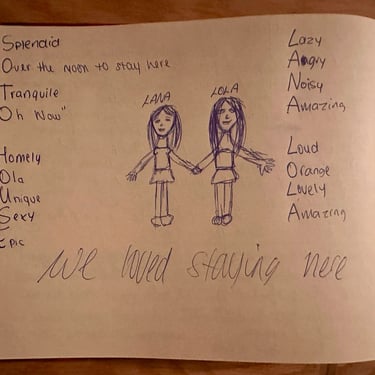 Splendid
Over the moon to stay here
Tranquile
Oh wow"
Homely
Ola
Unique
Sexy
Epic
LANA
LOLA
Lazy
Angry
Noisy
Amazing
Loud
Orange
Lovely
Amazing
we loved staying here